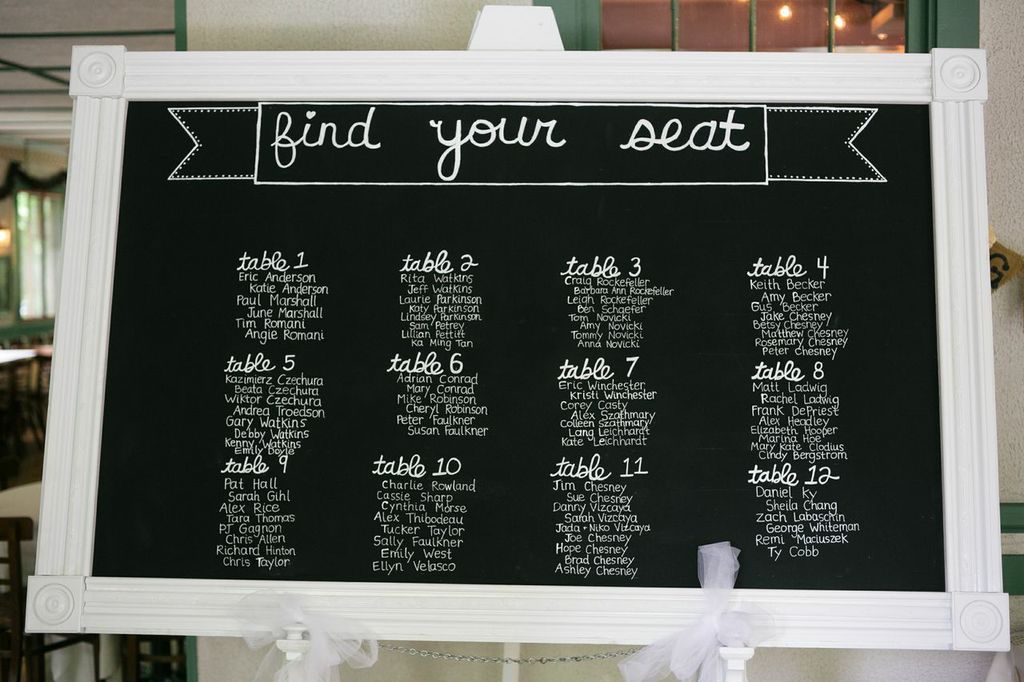 find your seat
table 1
Eric Anderson
Katie Anderson
Paul Marshall
June Marshall
Tim Romani
Angie Romani
table 2
Rita Watkins
Jeff Watkins
Laurie Parkinson
Katy Parkinson
Lindsey Parkinson
Sam Petrey
Lillian Pettitt
Ka Ming Tan
table 3
Craig Rockefeller
Barbara Ann Rockefeller
Leigh Rockefeller
Ben Schaefer
Tom Novicki
Amy Novicki
Tommy Novicki
Anna Novicki
table 4
Keith Becker
Amy Becker
Gus Becker
Jake Chesney
Betsy Chesney
Matthew Chesney
Rosemary Chesney
Peter Chesney
table 5
Kazimierz Czechura
Beata Czechura
Wiktor Czechura
Andrea Troedson
Gary Watkins
Debby Watkins
Kenny Watkins
Emily Boyle
table 6
Adrian Conrad
Mary Conrad
Mike Robinson
Cheryl Robinson
Peter Faulkner
Susan Faulkner
table 7
Eric Winchester
Kristi Winchester
Corey Casty
Alex Szathmary
Colleen Szathmary
Lang Leichhardt
Kate Leichhardt
table 8
Matt Ladwig
Rachel Ladwig
Frank DePriest
Alex Headley
Elizabeth Hooper
Marina Hoe
Mary Kate Clodius
Cindy Bergstrom
table 9
Pat Hall
Sarah Gihl
Alex Rice
Tara Thomas
PJ Gagnon
Chris Allen
Richard Hinton
Chris Taylor
table 10
Charlie Rowland
Cassie Sharp
Cynthia Morse
Alex Thibodeau
Tucker Taylor
Sally Faulkner
Emily West
Ellyn Velasco
table 11
Jim Chesney
Sue Chesney
Danny Vizcaya
Sarah Vizcaya
Jada + Niko Vizcaya
Joe Chesney
Hope Chesney
Brad Chesney
Ashley Chesney
table 12
Daniel Ky
Sheila Chang
Zach Labaschin
George Whiteman
Remi Maciuszek
Ty Cobb